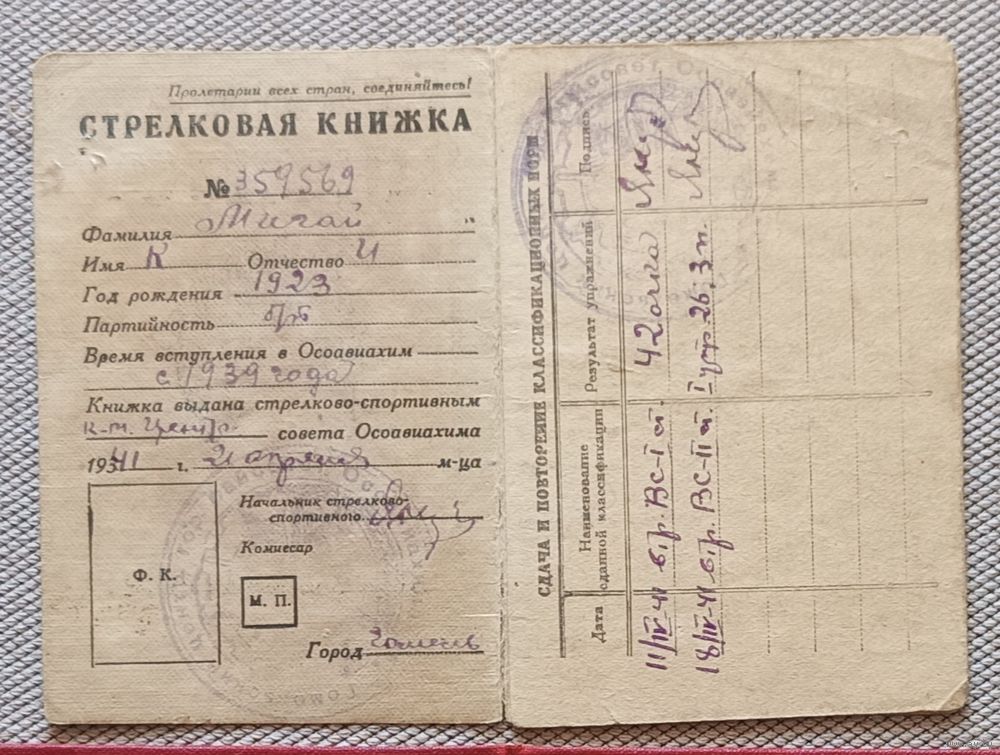 Пролетарии всех стран, соединяйтесь!
СТРЕЛКОВАЯ КНИЖКА
№ 359569
Фамилия Мигай
Имя К Отчество И
Год рождения 1923
Партийность б/п
Время вступления в Осоавиахим
с 1939 года
Книжка выдана стрелково-спортивным
к-т. Центр. совета Осоавиахима
1941 г. 21 апреля м-ца
Начальник стрелково-
спортивного
Комиссар
Ф. К.
М. П.
Город Гомель
СДАЧА И ПОВТОРЕНИЕ КЛАССИФИКАЦИОННЫХ НОРМ
Дата Наименование сданной классификации Результат упражнений Подпись
11/IV-41 ВС-I ст. 42 очка
18/IV-41 ВС-II ст. I упр. 26, 3 п.